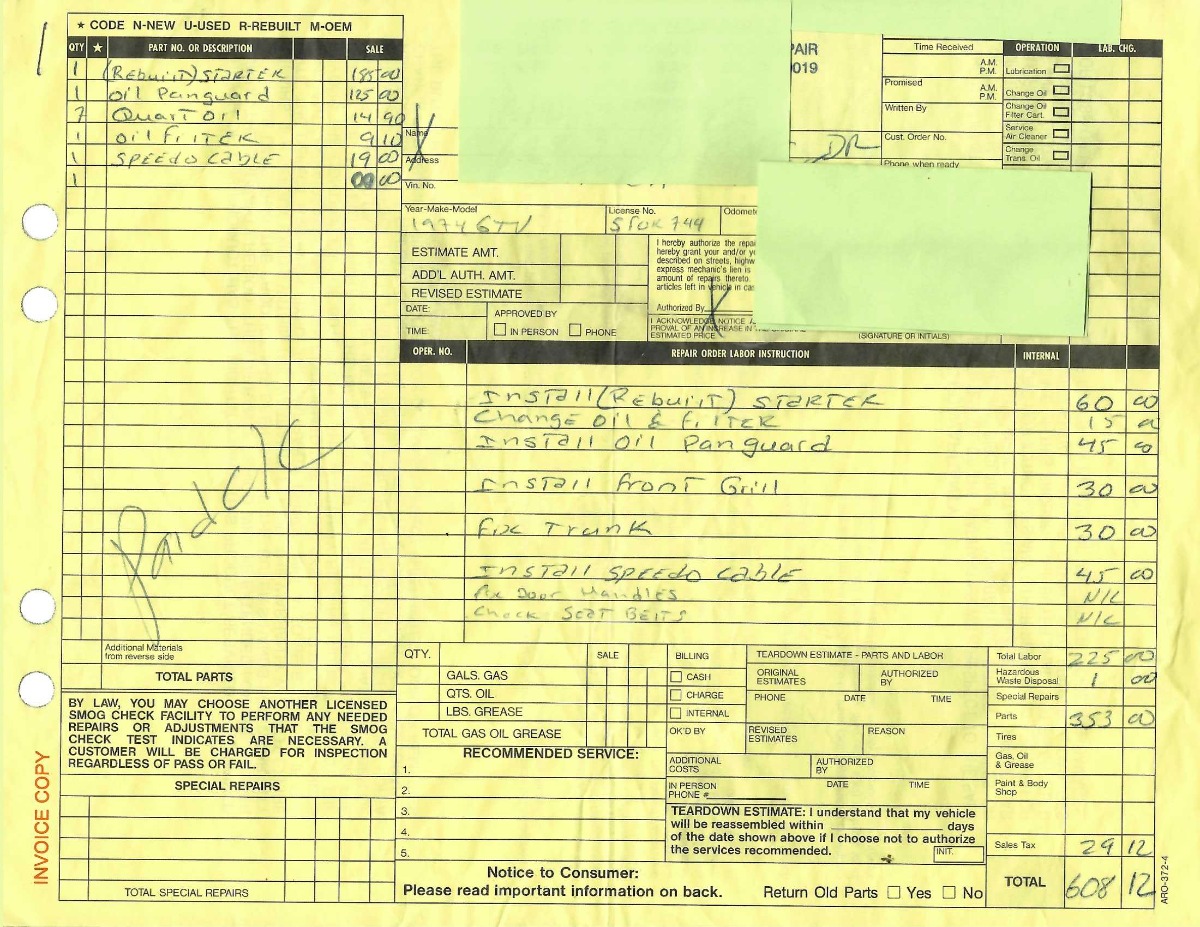 ★ CODE N-NEW U-USED R-REBUILT M-OEM
QTY ★ PART NO. OR DESCRIPTION SALE
1 (Rebuilt) STARTER 185 00
1 Oil Panguard 125 00
7 Quart Oil 14 90
1 Oil FilTER 9 10
1 SPEEDO CABLE 19 00
1 00 00
PAIR
0019
Name
Address
DR
Vin. No.
Year-Make-Model
1974 GTV
License No.
Odomete
Time Received A.M. P.M.
Promised A.M. P.M.
Written By
Cust. Order No.
Phone when ready
OPERATION LAB. CHG.
Lubrication
Change Oil
Change Oil Filter Cart.
Service Air Cleaner
Change Trans. Oil
ESTIMATE AMT.
ADD'L AUTH. AMT.
REVISED ESTIMATE
DATE:
TIME:
APPROVED BY
IN PERSON PHONE
I hereby authorize the repa
hereby grant your and/or y
described on streets, highw
express mechanic's lien is
amount of repairs thereto.
articles left in vehicle in ca
Authorized By
I ACKNOWLEDGE NOTICE A
PROVAL OF AN INCREASE IN THE
ESTIMATED PRICE
(SIGNATURE OR INITIALS)
OPER. NO. REPAIR ORDER LABOR INSTRUCTION INTERNAL
Install (Rebuilt) STARTER 60 00
Change Oil & FilTER 15 00
Install Oil Panguard 45 00
Install Front Grill 30 00
Fix Trunk 30 00
Install SPEEDO Cable 45 00
Fix Door Handles N/C
Check Seat Belts N/C
Paid
Additional Materials from reverse side
TOTAL PARTS
BY LAW, YOU MAY CHOOSE ANOTHER LICENSED
SMOG CHECK FACILITY TO PERFORM ANY NEEDED
REPAIRS OR ADJUSTMENTS THAT THE SMOG
CHECK TEST INDICATES ARE NECESSARY. A
CUSTOMER WILL BE CHARGED FOR INSPECTION
REGARDLESS OF PASS OR FAIL.
SPECIAL REPAIRS
TOTAL SPECIAL REPAIRS
INVOICE COPY
QTY. SALE
GALS. GAS
QTS. OIL
LBS. GREASE
TOTAL GAS OIL GREASE
RECOMMENDED SERVICE:
1.
2.
3.
4.
5.
BILLING
CASH
CHARGE
INTERNAL
TEARDOWN ESTIMATE - PARTS AND LABOR
ORIGINAL ESTIMATES AUTHORIZED BY
PHONE DATE TIME
OK'D BY REVISED ESTIMATES REASON
ADDITIONAL COSTS AUTHORIZED BY
IN PERSON PHONE # DATE TIME
TEARDOWN ESTIMATE: I understand that my vehicle
will be reassembled within days
of the date shown above if I choose not to authorize
the services recommended. INIT.
Notice to Consumer:
Please read important information on back.
Return Old Parts Yes No
Total Labor 225 00
Hazardous Waste Disposal 1 00
Special Repairs
Parts 353 00
Tires
Gas, Oil & Grease
Paint & Body Shop
Sales Tax 29 12
TOTAL 608 12
ARO-372-4